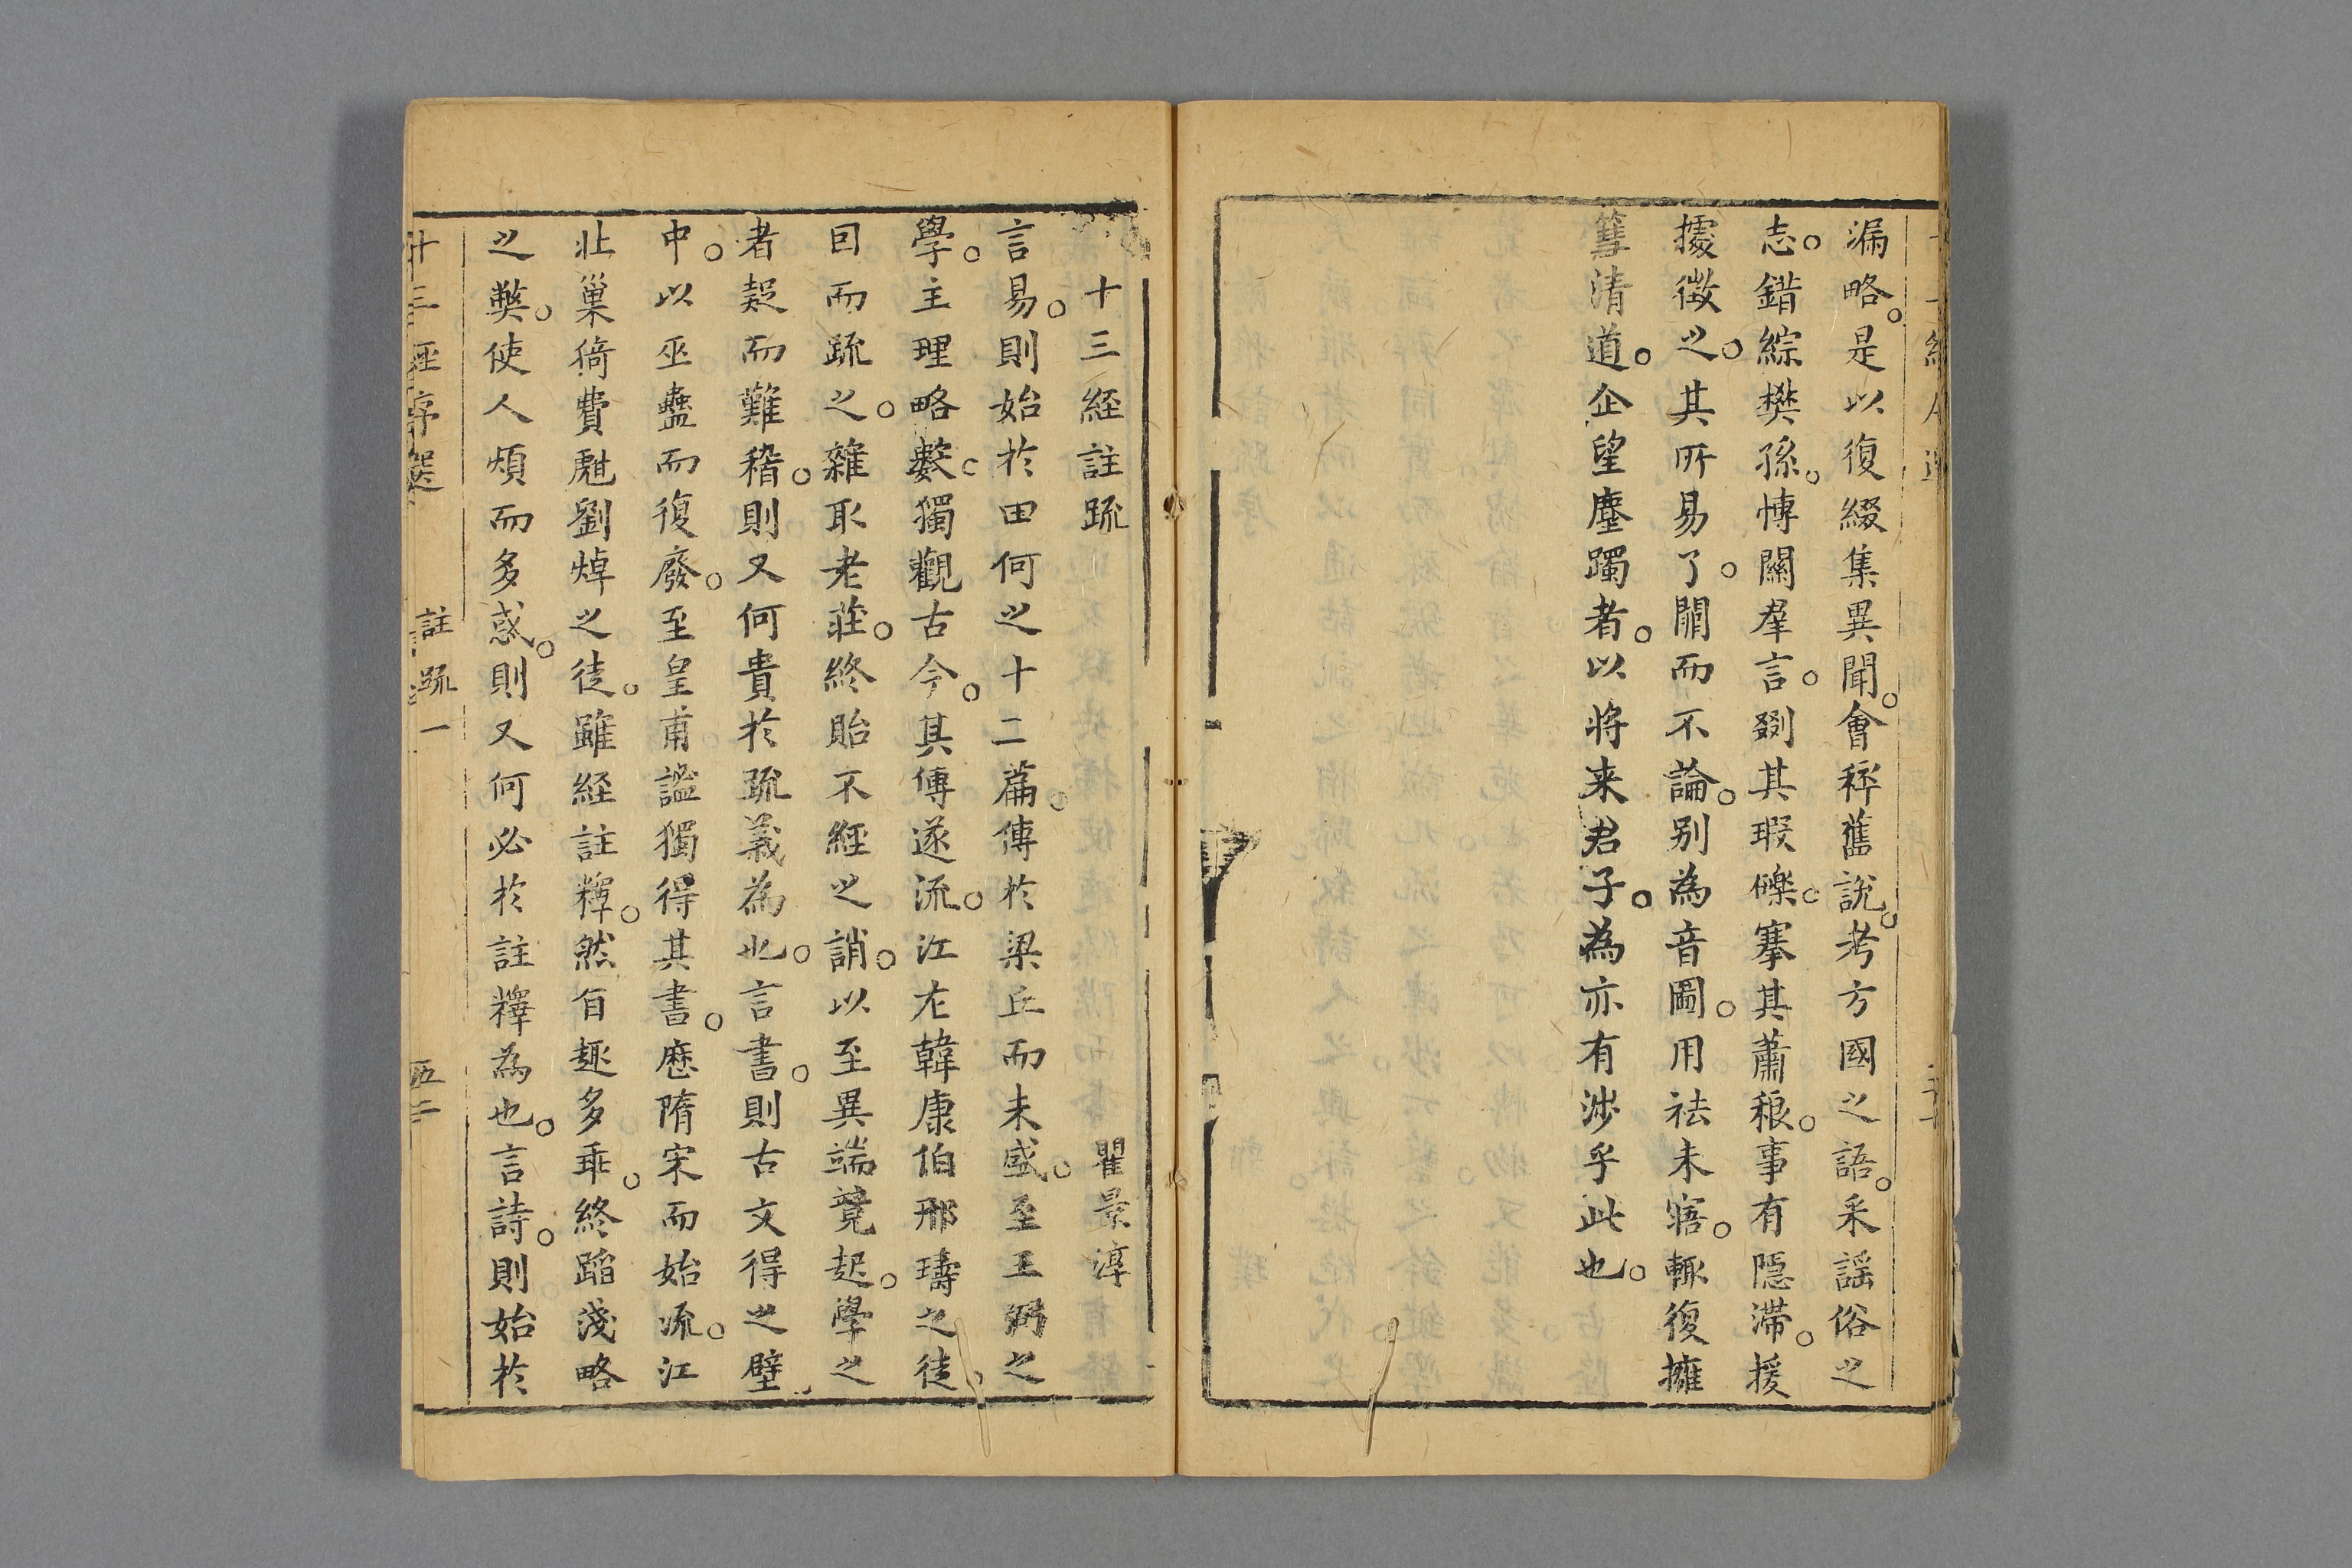 漏略。是以復綴集異聞。會稡舊說。考方國之語。采謠俗之
志。錯綜樊孫。博關羣言。剟其瑕礫。搴其蕭稂。事有隱滯。援
據徵之。其所易了。闕而不論。別為音圖。用祛未寤。輒復擁
篲清道。企望塵躅者。以將来君子。為亦有涉乎此也。
十三經註疏
瞿景淳
言易。則始於田何之十二篇。傳於梁丘而未盛。至王弼之
學。主理略數。獨觀古今。其傳遂流。江左韓康伯邢璹之徒。
因而疏之。雜取老莊。終貽不經之誚。以至異端競起。學之
者疑而難稽。則又何貴於疏義為也。言書。則古文得之壁
中。以巫蠱而復廢。至皇甫謐獨得其書。歷隋宋而始流。江
北巢猗費甝劉焯之徒。雖經註釋。然旨趣多乖。終蹈淺略
之弊。使人煩而多惑。則又何必於註釋為也。言詩。則始於
十三經序選
註疏一
五二